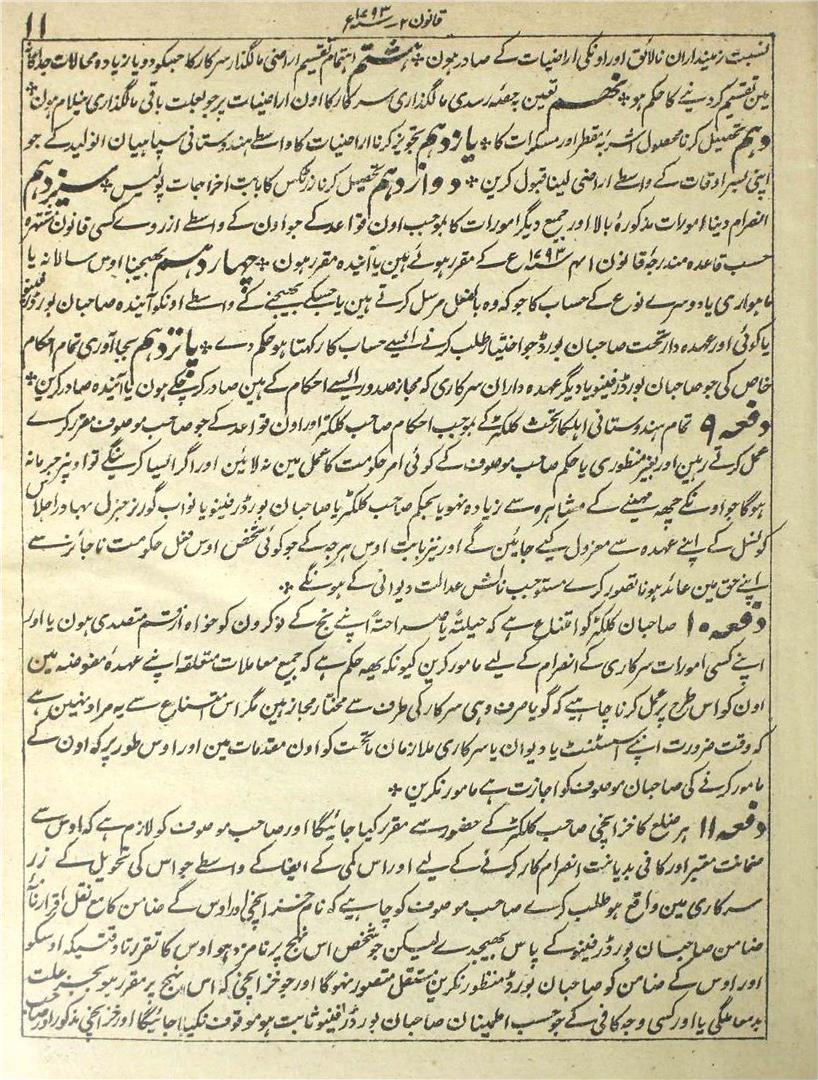 قانون ۲ ۔ سنہ ۱۷۹۳ ع
۱۱
نسبت زمینداران نالائق اور اونکی اراضیات کے صادر ہون * ہشتم اہتمام تقسیم اراضی مالگذار سرکار کا جسکو دو یا زیادہ محالات جداگانہ
مین تقسیم کر دینے کا حکم ہو * نہم تعین حصہ رسدی مالگذاری سرکار کا اون اراضیات پر جو بعلت باقی مالگذاری نیلام ہون *
دہم تحصیل کرنا محصول اشربہ مقطر اور مسکرات کا * یازدہم تجویز کرنا اراضیات کا واسطے ہندوستانی سپاہیان انولید کے جو
اپنی بسر اوقات کے واسطے اراضی لینا قبول کرین * دوازدہم تحصیل کرنا زر ٹکس کا بابت اخراجات پولیس * سیزدہم
انصرام دینا امورات مذکورہ بالا اور جمیع دیگر امورات کا بموجب اون قواعد کے جو اون کے واسطے ازروے کسی قانون مشتہرہ
حسب قاعدہ مندرجہ قانون ۴۱ سنہ ۱۷۹۳ ع کے مقرر ہوئے ہین یا آیندہ مقرر ہون * چہاردہم بھیجنا اوس سالانہ یا
ماہواری یا دوسرے نوع کے حساب کا جو کہ وہ بالفعل مرسل کرتے ہین یا جسکے بھیجنے کے واسطے اونکو آیندہ صاحبان بورڈ رفینو
یا کوئی اور عہدہ دار تحت صاحبان بورڈ جو اختیار طلب کرنے ایسے حساب کا رکھتا ہو حکم دے * پانزدہم بجا آوری تمام احکام
خاص کی جو صاحبان بورڈ رفینو یا دیگر عہدہ داران سرکاری کہ مجاز صدور ایسے احکام کے ہین صادر کر چکے ہون یا آیندہ صادر کرین *
دفعہ ۹ تمام ہندوستانی اہلکار تحت کلکٹر کے بموجب احکام صاحب کلکٹر اور اون قواعد کے جو صاحب موصوف مقرر کرے
عمل کرتے رہین اور بغیر منظوری یا حکم صاحب موصوف کے کوئی امر حکومت کا عمل مین نہ لائین اور اگر ایسا کرینگے تو اونپر جرمانہ
ہوگا جو اونکے چھہ مہینے کے مشاہرہ سے زیادہ نہو یا بحکم صاحب کلکٹر یا صاحبان بورڈ رفینو یا نواب گورنر جنرل بہادر اجلاس
کونسل کے اپنے عہدہ سے معزول کیے جائین گے اور نیز بابت اوس ہرجہ کے جو کوئی شخص اوس فعل حکومت ناجائز سے
اپنے حق مین عائد ہونا تصور کرے مستوجب نالش عدالت دیوانی کے ہونگے *
دفعہ ۱۰ صاحبان کلکٹر کو امتناع ہے کہ حیلتہً یا صراحتہً اپنے نج کے نوکرون کو خواہ از قسم متصدی ہون یا اور
اپنے کسی امورات سرکاری کے انصرام کے لیے مامور کرین کیونکہ یہہ حکم ہے کہ جمیع معاملات متعلقہ اپنے عہدہ مفوضہ مین
اون کو اس طرح پر عمل کرنا چاہیے کہ گویا صرف وہی سرکار کی طرف سے مختار مجاز ہین مگر اس امتناع سے یہ مراد نہین ہے
کہ وقت ضرورت اپنے اسسٹنٹ یا دیوان یا سرکاری ملازمان ماتحت کو اون مقدمات مین اور اوس طور پر کہ اون کے
مامور کرنے کی صاحبان موصوف کو اجازت ہے مامور نکرین *
دفعہ ۱۱ ہر ضلع کا خزانچی صاحب کلکٹر کے حضور سے مقرر کیا جائیگا اور صاحب موصوف کو لازم ہے کہ اوس سے
ضمانت معتبر اور کافی بدیانت انصرام کار کرنے کے لیے اور اس کمی کے ایفاء کے واسطے جو اس کی تحویل کے زر
سرکاری مین واقع ہو طلب کرے صاحب موصوف کو چاہیے کہ نام خزانچی اور اوس کے ضامن کا مع نقل اقرارنامہ
ضامن صاحبان بورڈ رفینو کے پاس بھیجدے لیکن جو شخص اس نہج پر نامزد ہو اوس کا تقرر تا وقتیکہ اوسکو
اور اوس کے ضامن کو صاحبان بورڈ منظور نکرین مستقل متصور نہوگا اور جو خزانچی کہ اس نہج پر مقرر ہو بجز علت
بدمعاملگی یا اور کسی وجہ کافی کے جو حسب اطمینان صاحبان بورڈ رفینو ثابت ہو موقوف نکیا جائیگا اور خزانچی مذکور اور صاحب